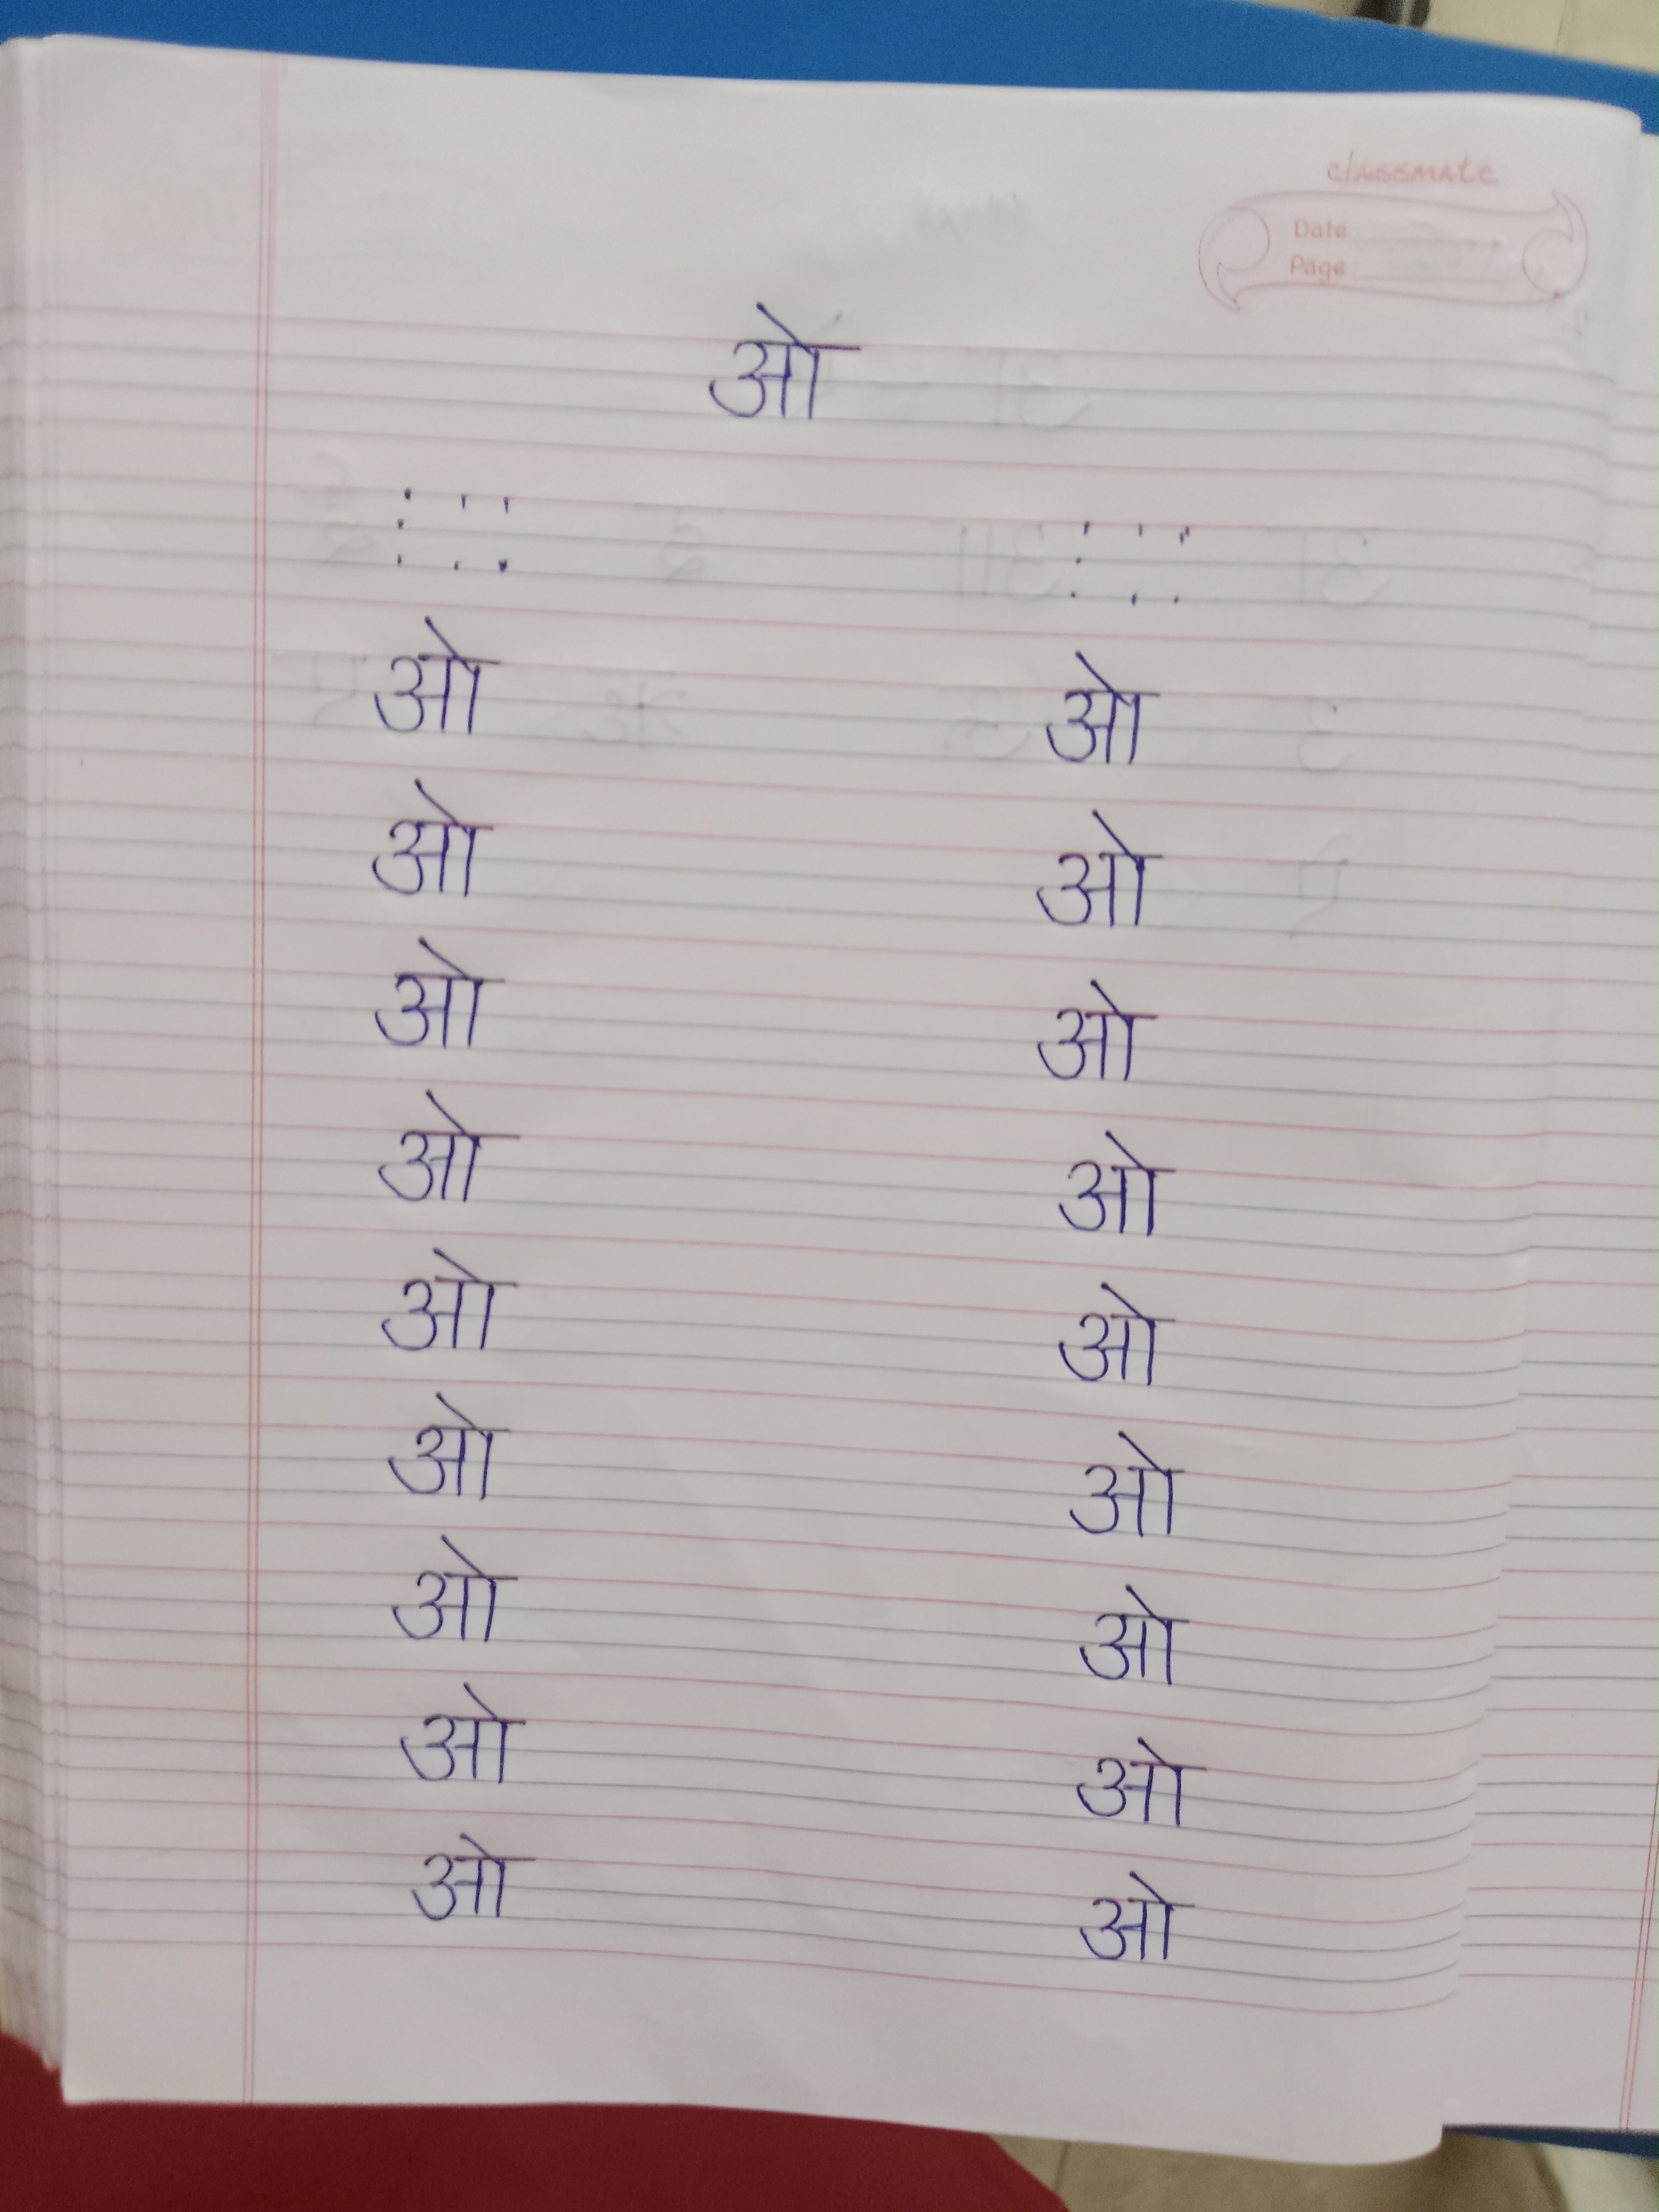 classmate
Date
Page
ओ
ओ ओ
ओ ओ
ओ ओ
ओ ओ
ओ ओ
ओ ओ
ओ ओ
ओ ओ
ओ ओ